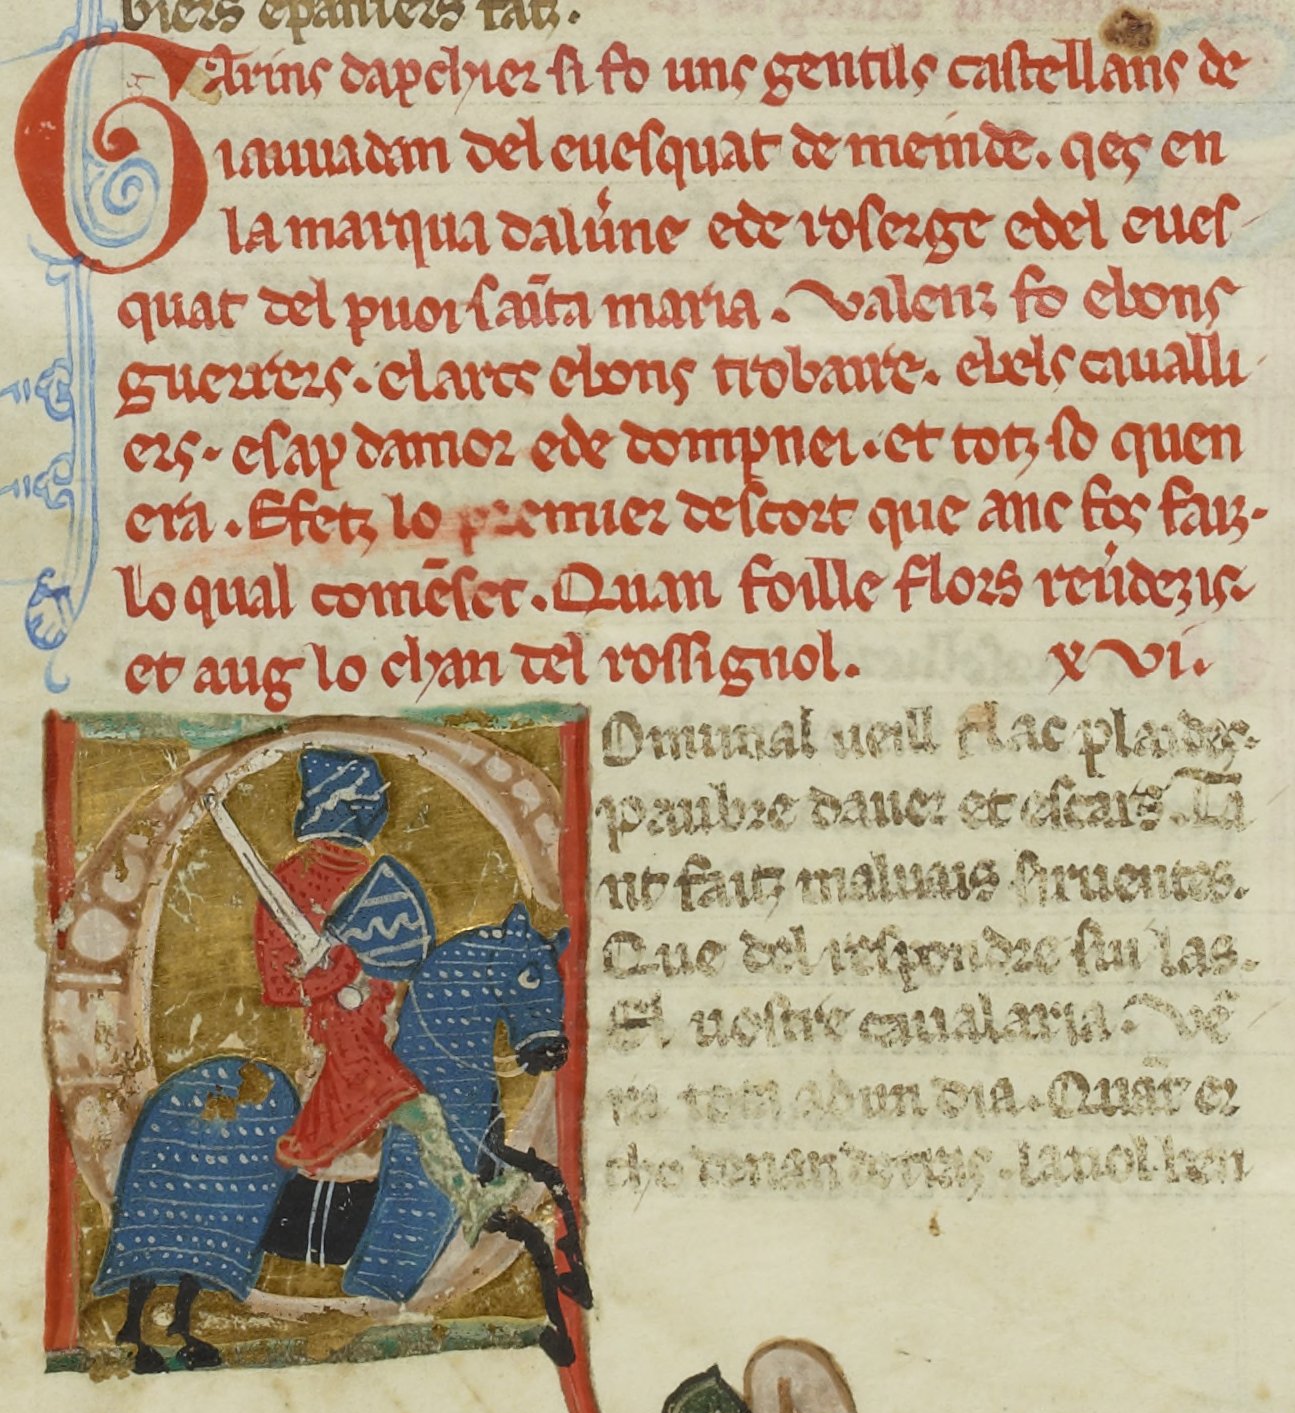 biers epaniers fatz.
Garins dapchier si fo uns gentils castellans de
iauuadan del euesquat de meinde. qes en
la marqua daluerne ede roserge edel eues
quat del puoi sainta maria. Valenz fo ebons
guerrers. elarcs ebons trobaire. ebels caualli
ers. esap damor ede dompnei. et totz so quen
era. Efetz lo premier descort que anc fos faiz.
lo qual comēset. Quan foille flors reuˀdezis.
et aug lo chan del rossignol. xvi.
Ominal ueill flac plaides.
paubre dauer et escars. Ta
nt faitz maluais siruentes.
Que del respondre sui las.
El uostre caualaria. Ve
tem ad un dia. Quar er